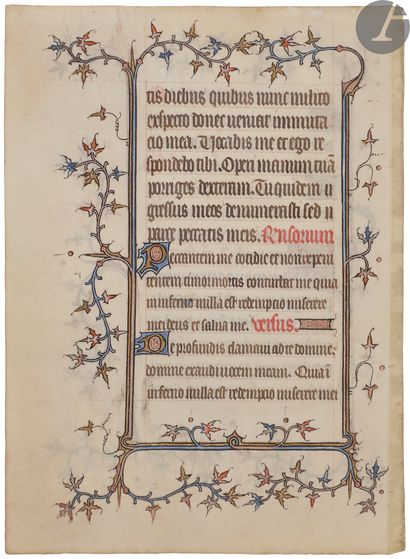 tis diebus quibus nunc milito
expecto donec ueniat inmuta
cio mea. Vocabis me et ego re
spondebo tibi. Operi manuum tuaꝝ
porriges dexteram. Tu quidem g
gressus meos denumerasti sed
parce peccatis meis. Responsorium
Peccantem me cotidie et non peni
tentem timor mortis conturbat me quia
in inferno nulla est redempcio miserere
mei deus et salua me. Versus.
De profundis clamaui ad te domine:
domine exaudi uocem meam. Quia in
inferno nulla est redempcio miserere mei